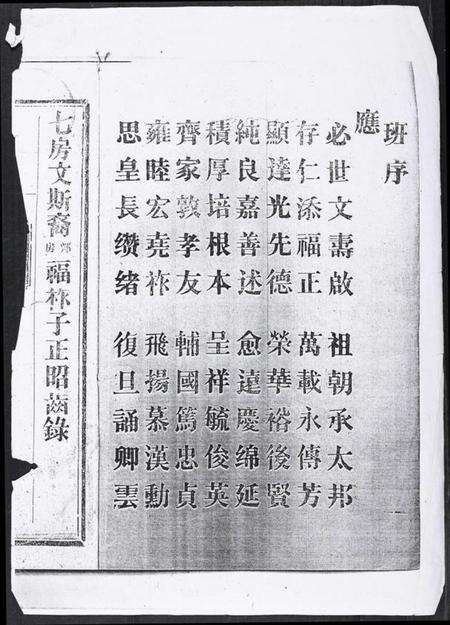 班序
應
必世文壽啟 祖朝承太邦
存仁添福正 萬載永傳芳
顯達光先德 榮華裕後賢
純良嘉善述 愈遠慶綿延
積厚培根本 呈祥毓俊英
齊家敦孝友 輔國篤忠貞
雍睦宏堯祚 飛揚慕漢勳
思皇長纘緒 復旦誦卿雲
七房文斯裔 福祚子正昭齒錄